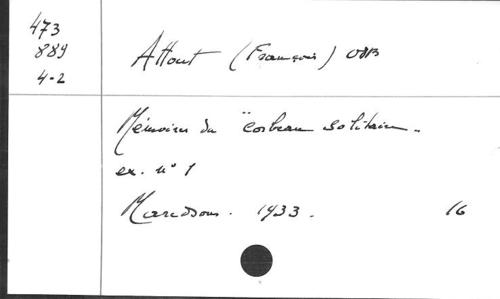 473
889
4-2
Attout (François) OSB
Mémoires du "corbeau solitaire"
ex. n° 1
Maredsous. 1933. 16